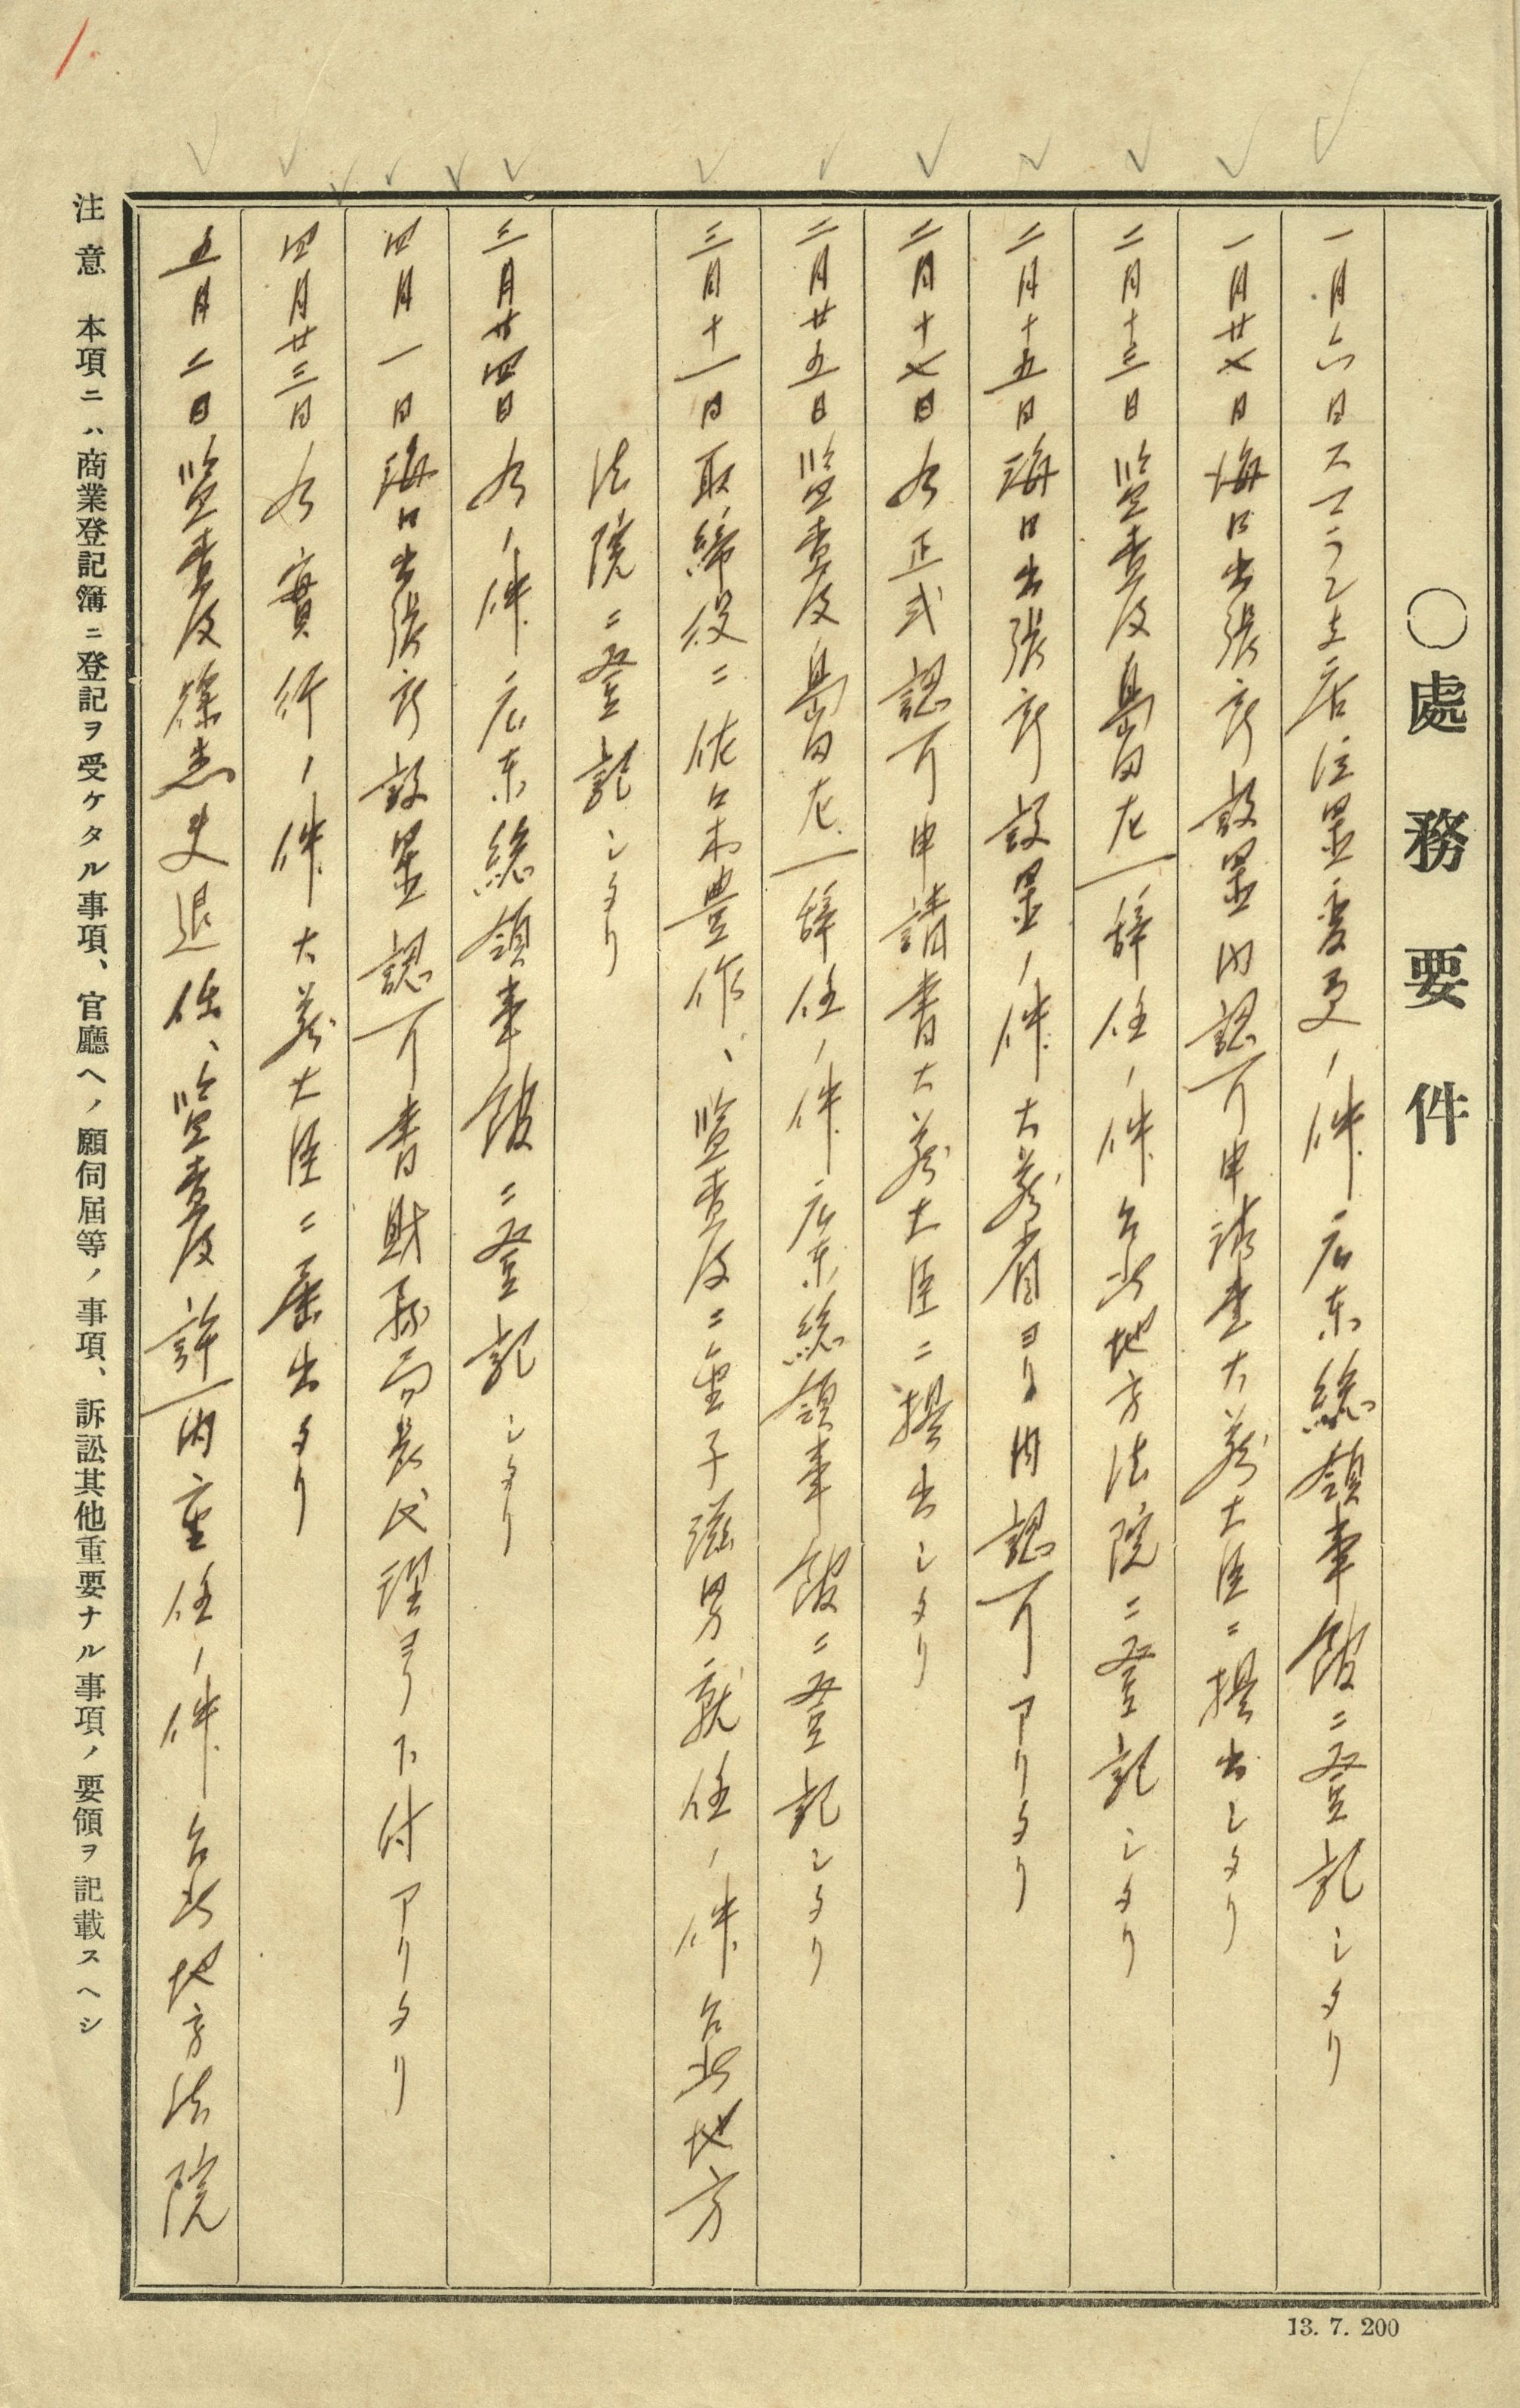 ○處務要件
一月六日スマラン支店位置変更ノ件広東総領事館ニ登記シタリ
一月廿七日海口出張所設置内認可申請書大蔵大臣ニ提出シタリ
二月十三日監査役島田左一辞任ノ件台北地方法院ニ登記シタリ
二月十五日海口出張所設置ノ件大蔵省ヨリ内認可アリタリ
二月十七日右正式認可申請書大蔵大臣ニ提出シタリ
二月廿五日監査役島田左一辞任ノ件広東総領事館ニ登記シタリ
三月十一日取締役ニ佐々木豊作、監査役ニ金子滋男就任ノ件台北地方
法院ニ登記シタリ
三月廿四日右ノ件広東総領事館ニ登記シタリ
四月一日海口出張所設置認可書財務局長代理ヨリ下付アリタリ
四月廿三日右實行ノ件大蔵大臣ニ届出タリ
五月二日監査役 退任、監査役許丙重任ノ件台北地方法院
注意 本項ニハ商業登記簿ニ登記ヲ受ケタル事項、官廳ヘノ願伺屆等ノ事項、訴訟其他重要ナル事項ノ要領ヲ記載スヘシ
13. 7. 200